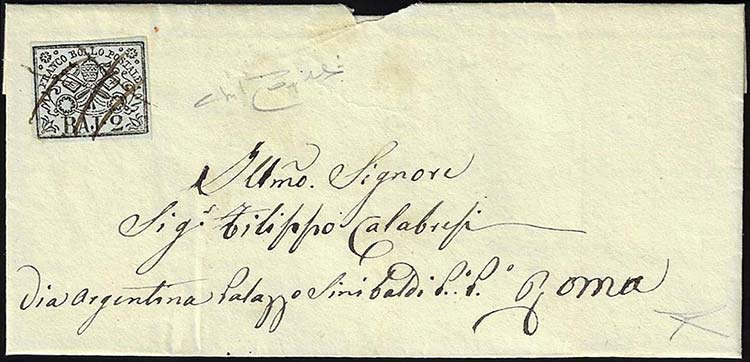 FRANCO BOLLO POSTALE
BAJ. 2
Illmo. Signore
Sigr. Filippo Calabresi
Via Argentina Palazzo Sinibaldi P.º P.º Roma